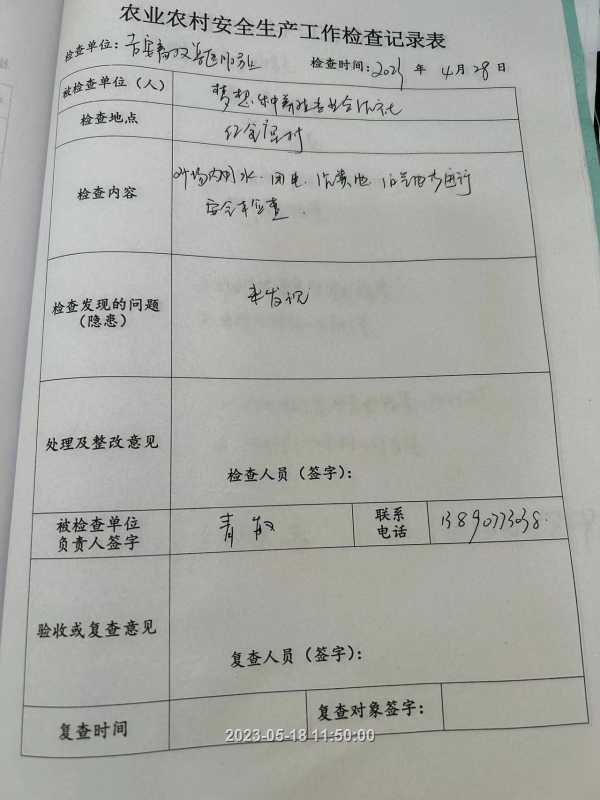 农业农村安全生产工作检查记录表
检查单位： 检查时间：2023 年 4 月 28 日
被检查单位（人） 梦想种养殖专业合作社
检查地点 村
检查内容 对场内用水、用电、沼气池 进行
安全检查.
检查发现的问题
（隐患） 未发现
处理及整改意见
检查人员（签字）：
被检查单位
负责人签字 青 联系
电话
验收或复查意见
复查人员（签字）：
复查时间 复查对象签字：
2023-05-18 11:50:00